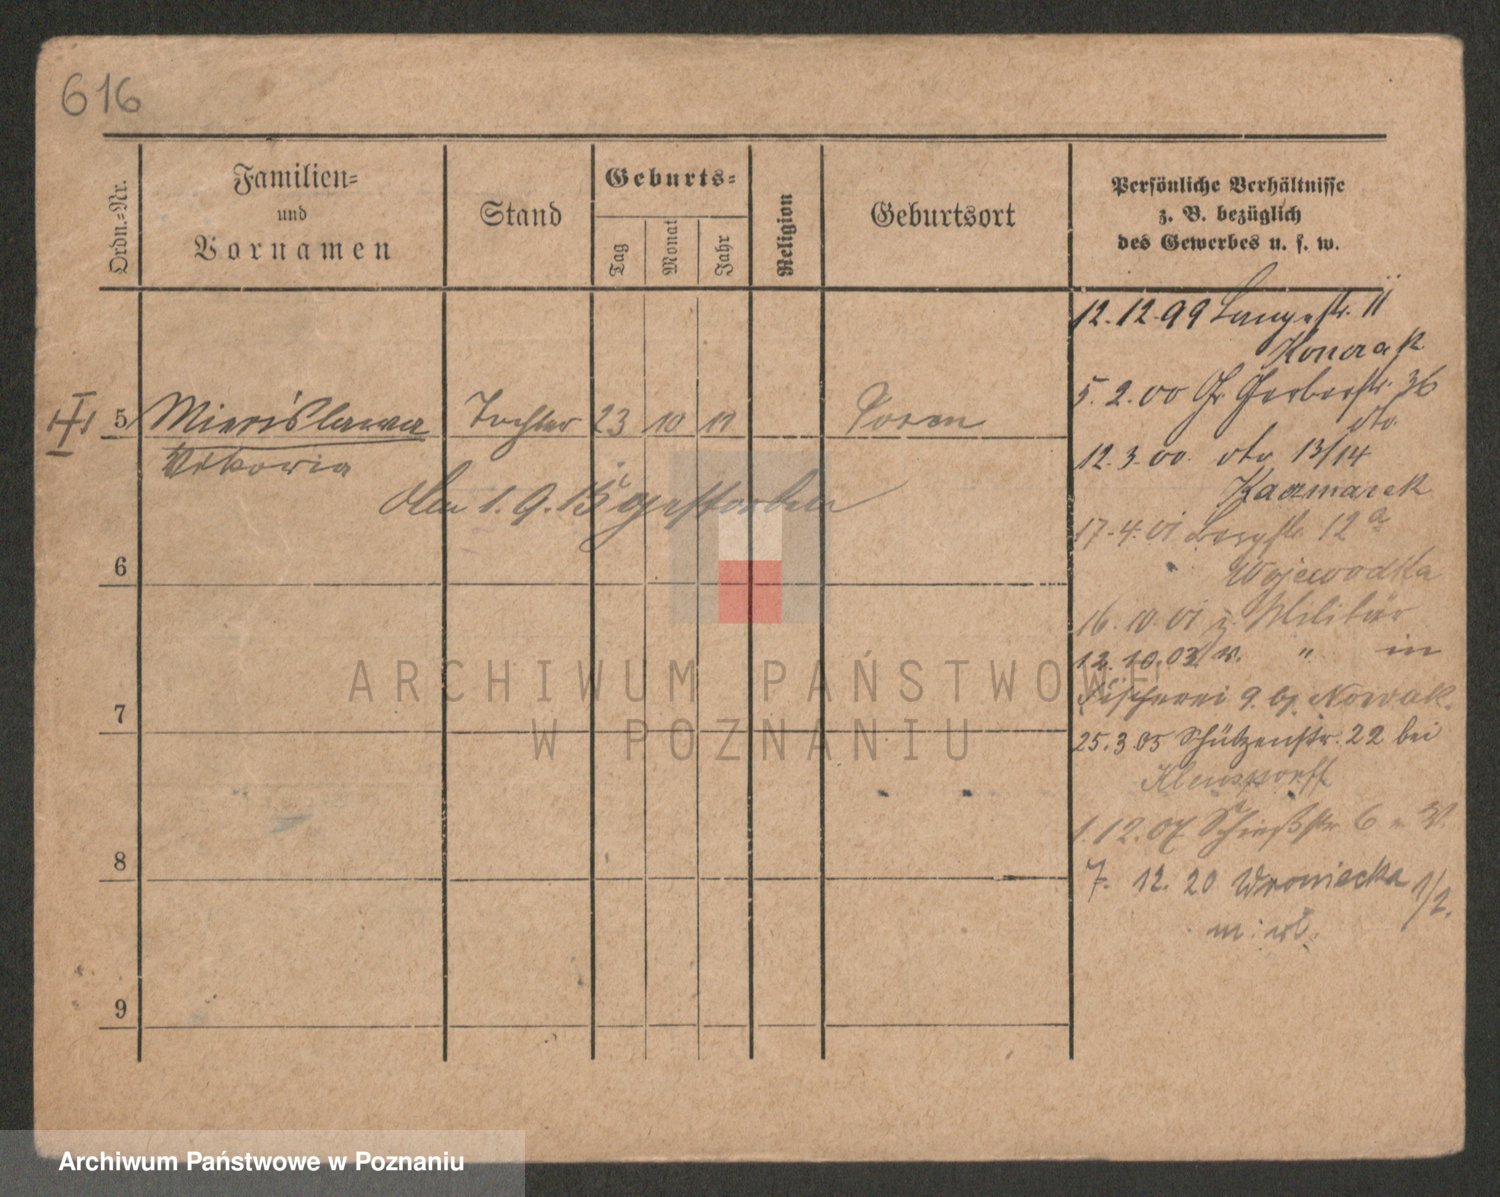 616
Ordn.=Nr.
Familien=
und
Vornamen
Stand
Geburts=
Tag
Monat
Jahr
Religion
Geburtsort
Persönliche Verhältnisse
z. B. bezüglich
des Gewerbes u. s. w.
12.12.99 Langestr. 11
5 Mierislawa Tochter 23 10 11 Posen
5.2.00 Gr Gerberstr. 36
dto
12.3.00. dto 13/14
Kaczmarek
den 1.9.15 gestorben
17.4.01 Bergstr. 12a
Wojewodka
6
16.10.01 z. Militär
12.10.03 v. " in
Fischerei 9. bj. Nowak.
7
25.3.05 Schützenstr. 22 bei
1.12.07 Schießstr. 6
8
7. 12. 20 Wroniecka 1/2.
9
ARCHIWUM PAŃSTWOWE
W POZNANIU
Archiwum Państwowe w Poznaniu